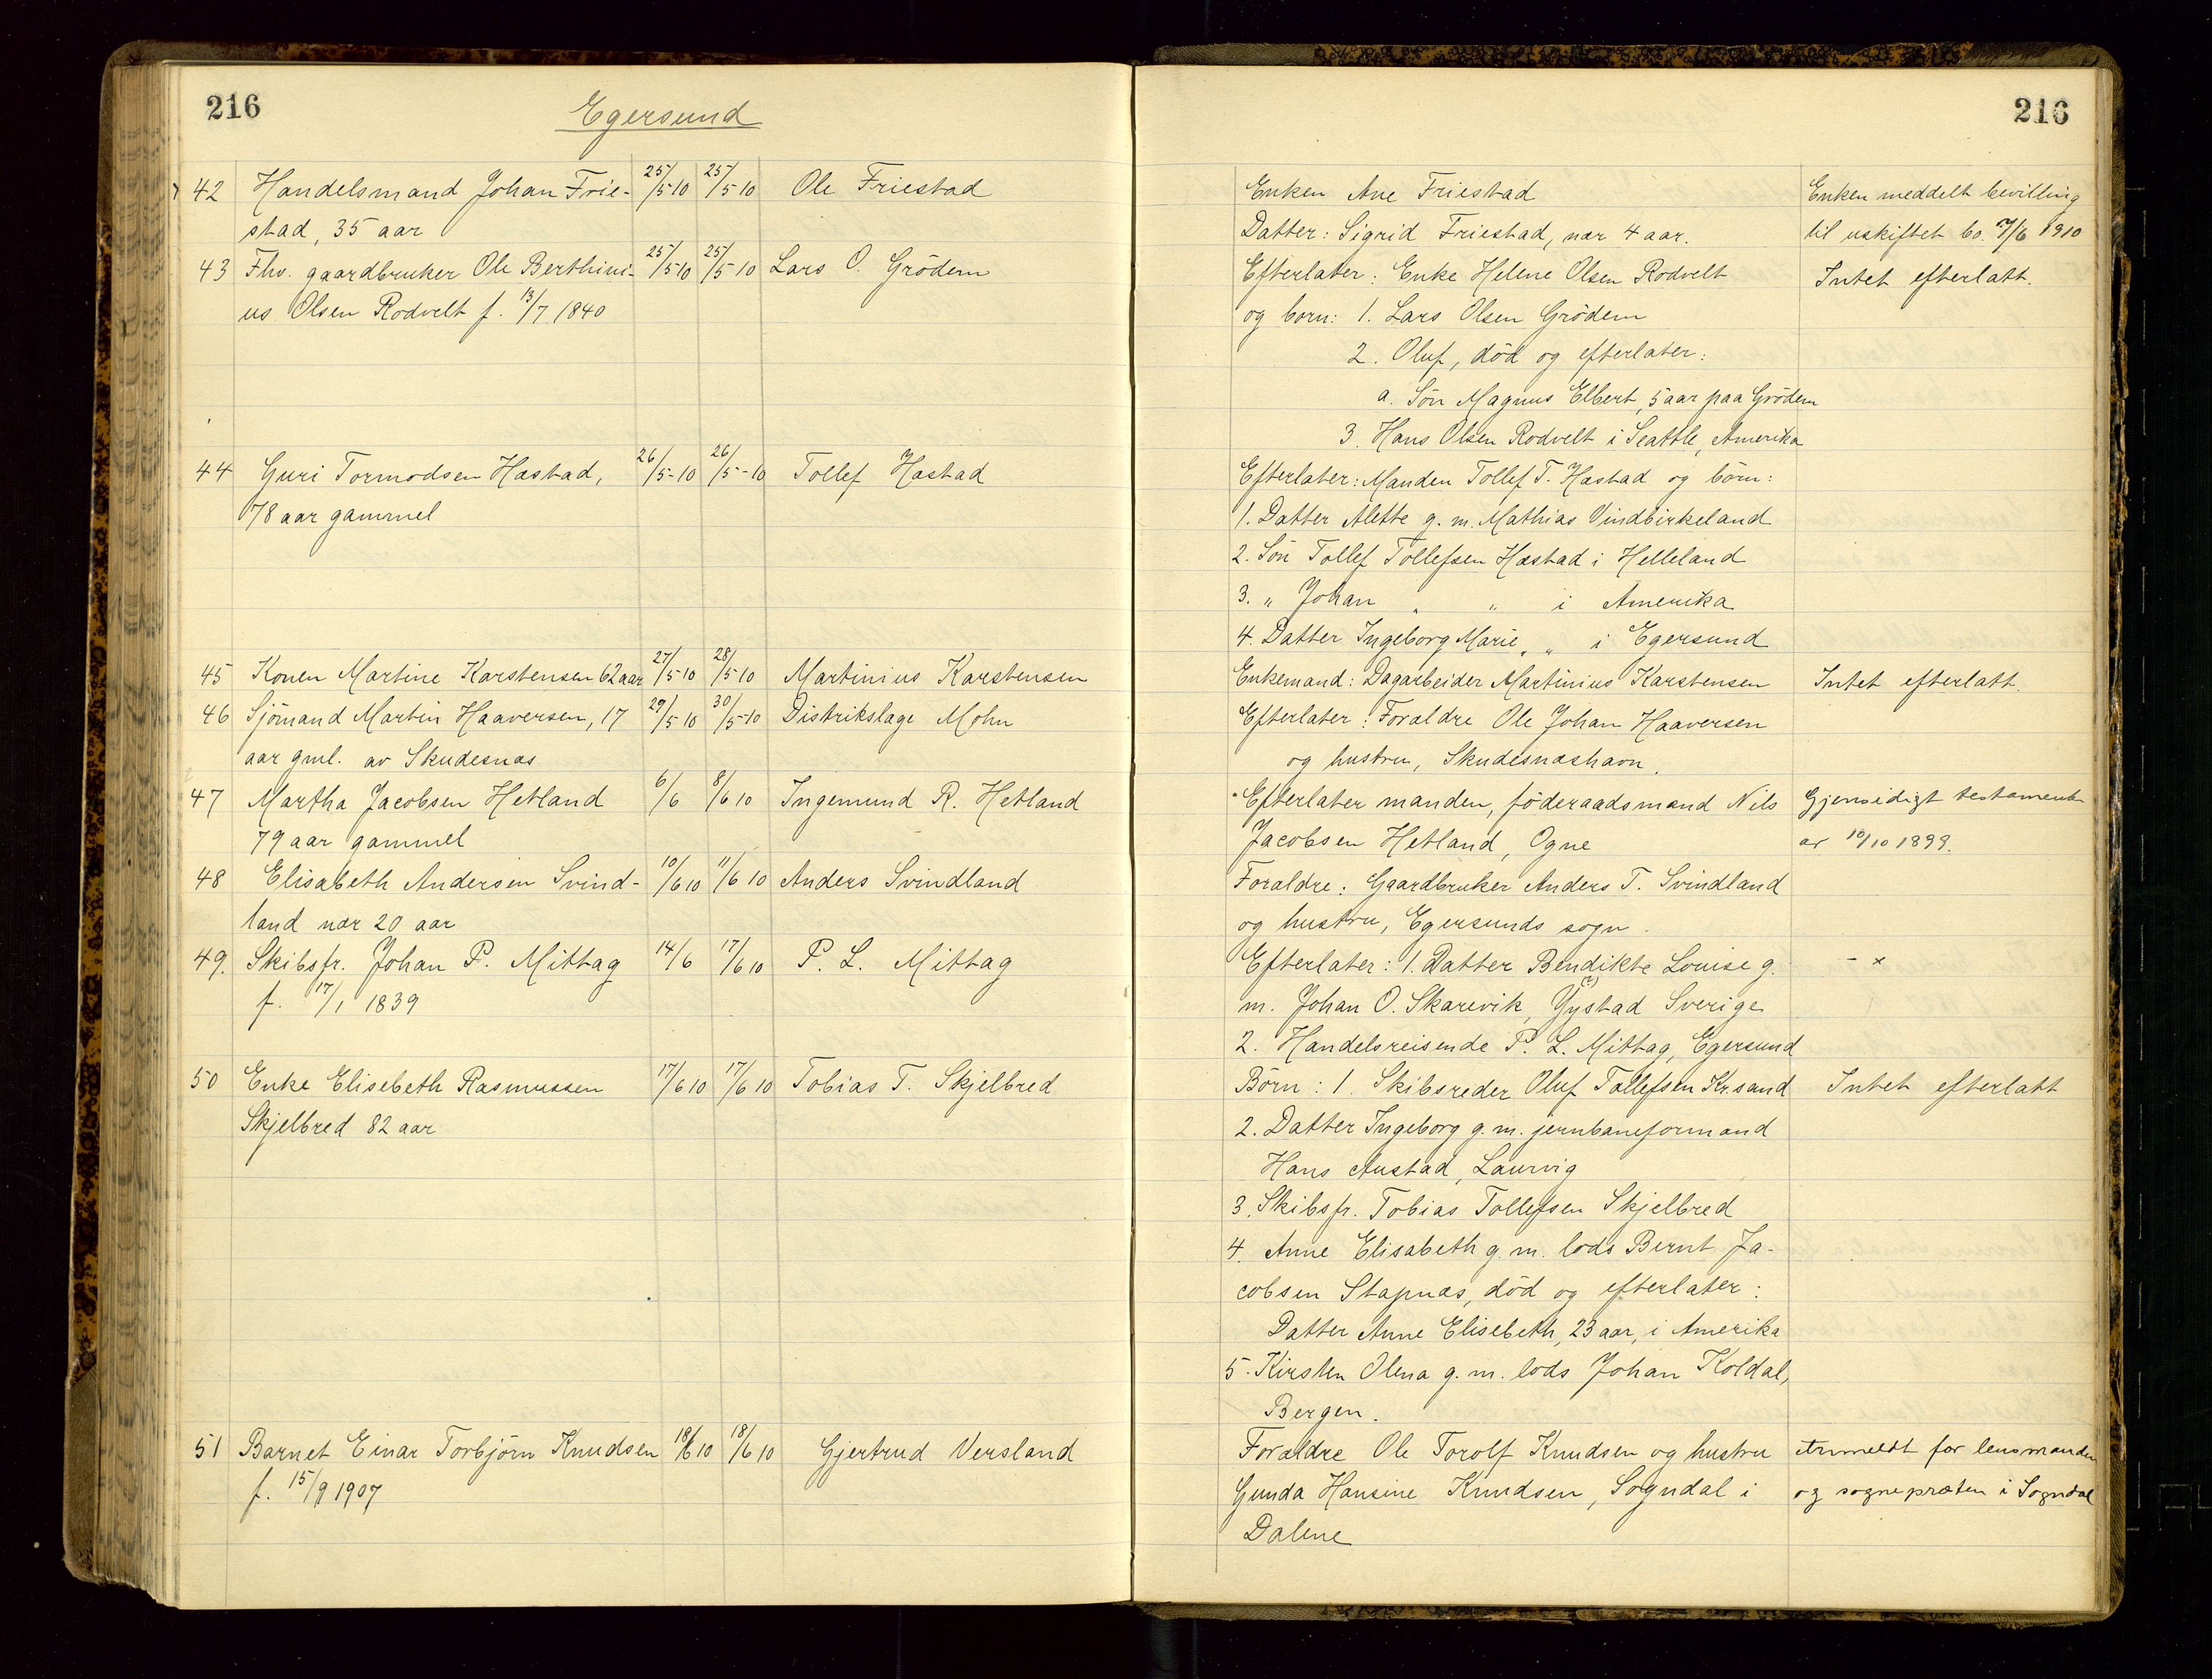 216
Egersund
42 Handelsmand Johan Frie- 25/5 10 25/5 10 Ole Friestad
stad, 35 aar
43 Fhv. gaardbruker Ole Berthini- 25/5 10 25/5 10 Lars O. Grödem
us Olsen Rodvelt f. 13/7 1840
44 Guri Tormodsen Hæstad, 26/5-10 26/5-10 Tollef Hæstad
78 aar gammel
45 Konen Martine Karstensen 62 aar 27/5 10 28/5 10 Martinius Karstensen
46 Sjömand Martin Haaversen, 17 29/5 10 30/5-10 Distrikslæge Mohn
aar gml. av Skudesnæs
47 Martha Jacobsen Hetland 6/6 8/6 10 Ingemund R. Hetland
79 aar gammel
48 Elisabeth Andersen Svind- 10/6 10 11/6 10 Anders Svindland
land nær 20 aar
49. Skibsfr. Johan P. Mittag 14/6 17/6 10 P. L. Mittag
f. 17/1 1839
50 Enke Elisebeth Rasmussen 17/6 10 17/6 10 Tobias T. Skjelbred
Skjelbred 82 aar
51 Barnet Einar Torbjörn Knudsen 18/6 10 18/6 10 Gjertrud Versland
f. 15/9 1907
216
Enken Ane Friestad Enken meddelt bevilling
Datter: Sigrid Friestad, nær 4 aar. til uskiftet bo. 7/6 1910
Efterlater: Enke Helene Olsen Rodvelt Intet efterlatt.
og born: 1. Lars Olsen Grödem
2. Oluf, död og efterlater:
a. Sön Magnus Elbert, 5 aar paa Grödem
3. Hans Olsen Rodvelt i Seattle, Amerika
Efterlater: Manden Tollef T. Hæstad og börn:
1. Datter Alette g. m. Mathias Vindbirkeland
2. Sön Tollef Tollefsen Hæstad i Helleland
3. " Johan " " i Amerika
4. Datter Ingeborg Marie " " i Egersund
Enkemand: Dagarbeider Martinius Karstensen Intet efterlatt.
Efterlater: Forældre Ole Johan Haaversen
og hustru, Skudesnæshavn.
Efterlater manden, föderaadsmand Nils Gjensidigt testament
Jacobsen Hetland, Ogne av 10/10 1899.
Forældre: Gaardbruker Anders T. Svindland
og hustru, Egersunds sogn.
Efterlater: 1. Datter Bendikte Louise g. - x
m. Johan O. Skarevik, Yystad (?) Sverige
2. Handelsreisende P. L. Mittag, Egersund
Börn: 1. Skibsreder Oluf Tollefsen Kr.sand Intet efterlatt
2. Datter Ingeborg g. m. jernbaneformand
Hans Austad, Laurvig
3. Skibsfr. Tobias Tollefsen Skjelbred
4. Anne Elisabeth g. m. lods Bernt Ja-
cobsen Stapnæs, död og efterlater:
Datter Anne Elisebeth, 23 aar, i Amerika
5. Kirsten Olena g. m. lods Johan Koldal,
Bergen.
Forældre Ole Torolf Knudsen og hustru Anmeldt for lensmanden
Gunda Hansine Knudsen, Sogndal i og sognepræten i Sogndal
Dalene